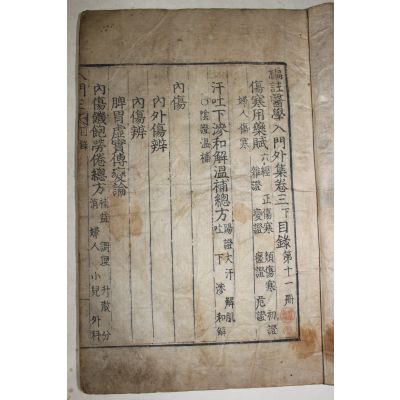 編註醫學入門外集卷三下目錄 第十一冊
傷寒用藥賦 六經 正傷寒 類傷寒 初證
雜證 變證 壞證 危證
婦人傷寒
汗吐下滲和解溫補總方 陽證大汗 解肌
吐 下 滲 和解
○陰證溫補
內傷
內外傷辨
內傷辨
脾胃虛實傳變論
內傷饑飽勞倦總方 補益 調理 升散 分
消 婦人 小兒 外科